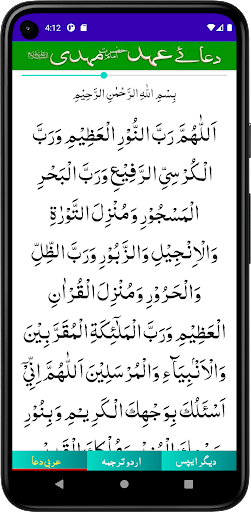 4:12
دعائے عہد حضرت امام مہدی
بِسْمِ اللهِ الرَّحْمٰنِ الرَّحِيْمِ
اَللّٰهُمَّ رَبَّ النُّوْرِ الْعَظِيْمِ وَرَبَّ
الْكُرْسِيِّ الرَّفِيْعِ وَرَبَّ الْبَحْرِ
الْمَسْجُوْرِ وَمُنْزِلَ التَّوْرٰةِ
وَالْاِنْجِيْلِ وَالزَّبُوْرِ وَرَبَّ الظِّلِّ
وَالْحَرُوْرِ وَمُنْزِلَ الْقُرْاٰنِ
الْعَظِيْمِ وَرَبَّ الْمَلٰٓئِكَةِ الْمُقَرَّبِيْنَ
وَالْاَنْبِيَآءِ وَالْمُرْسَلِيْنَ اَللّٰهُمَّ اِنِّيْٓ
اَسْئَلُكَ بِوَجْهِكَ الْكَرِيْمِ وَبِنُوْرِ
دیگر ایپس
اردو ترجمہ
عربی دعا